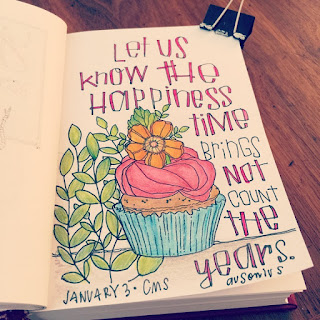 Let us
know the
Happiness
time
Brings
not
count
the
years.
ausonius
JANUARY 3 • CMS